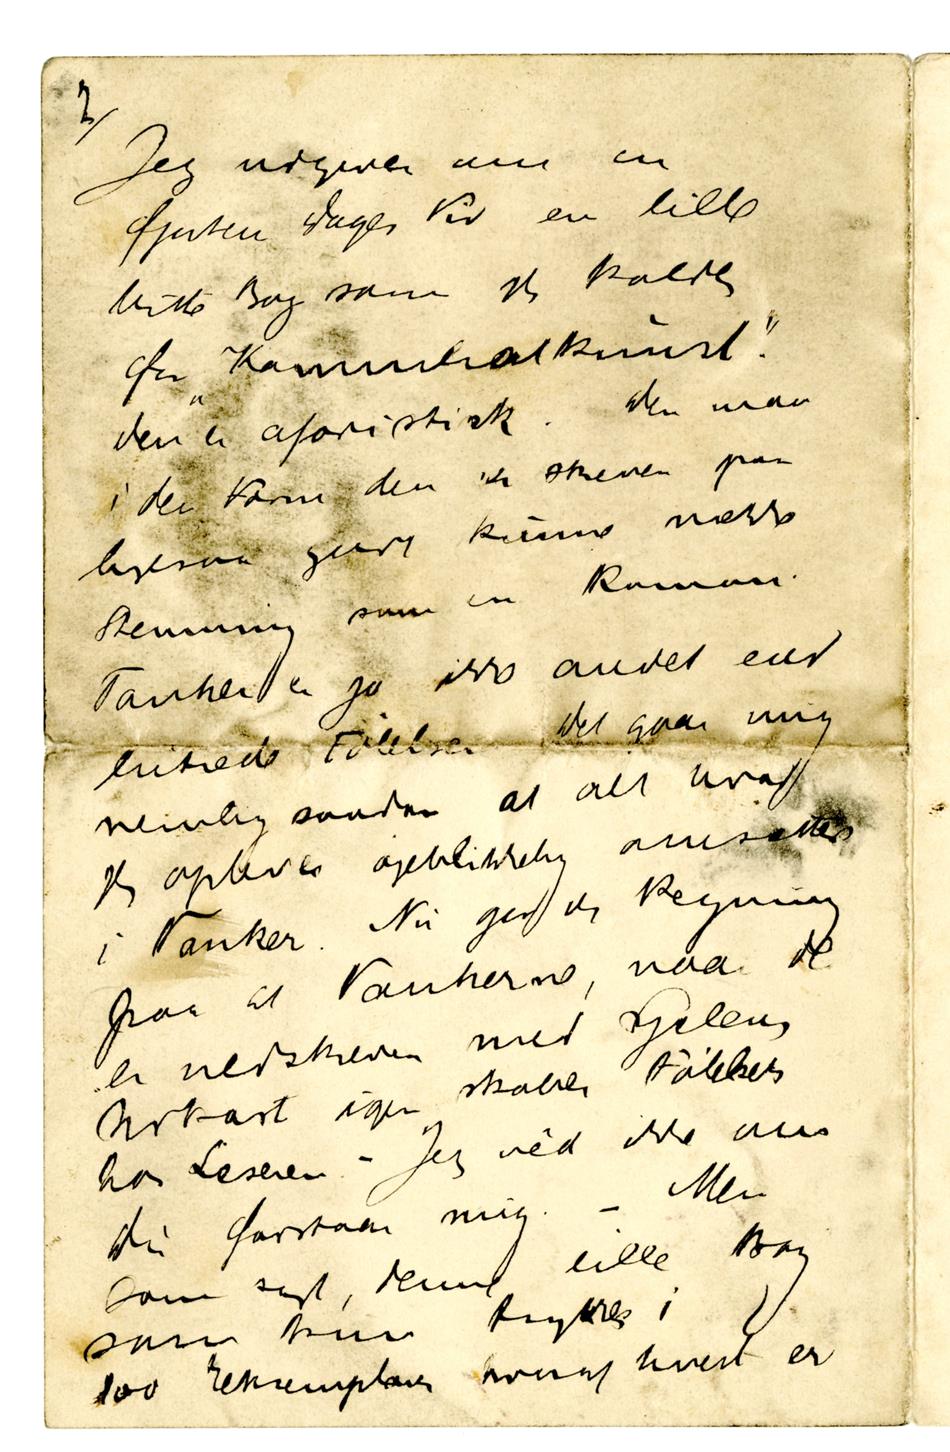 2/
Jeg udgiver om en
fjorten Dages Tid en lille
bitte Bog som jeg kalder
for "Kammeratkunst".
den er aforistisk. den maa
i den Form den er skreven paa
ligesaa godt kunne vække
Stemning som en Roman.
Tanker er jo ikke andet end
Følelser det gaar mig
nemlig saadan at alt hvad
jeg oplever øjeblikkelig omsættes
i Tanker. Nu gør jeg Regning
paa at Tankerne, naar de
er nedskreven med Sjælens
igen skaber Følelser
hos Læseren – Jeg véd ikke om
du forstaar mig. – Men
som sagt, denne lille Bog
som kun trykkes i
100 Eksemplarer hvoraf hvert er